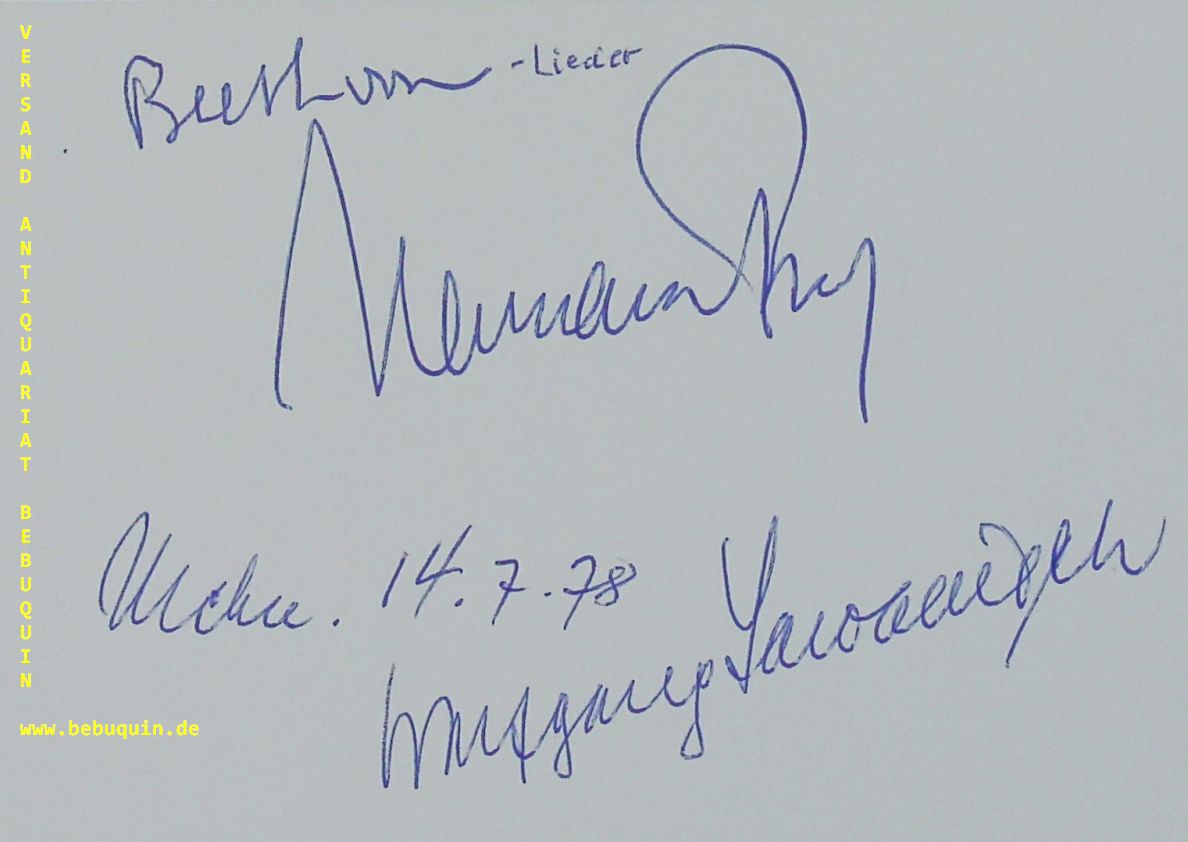 VERSAND ANTIQUARIAT BEBUQUIN
Beethoven -Lieder
Hermann Prey
Mchn. 14.7.78
Wolfgang Sawallisch
www.bebuquin.de